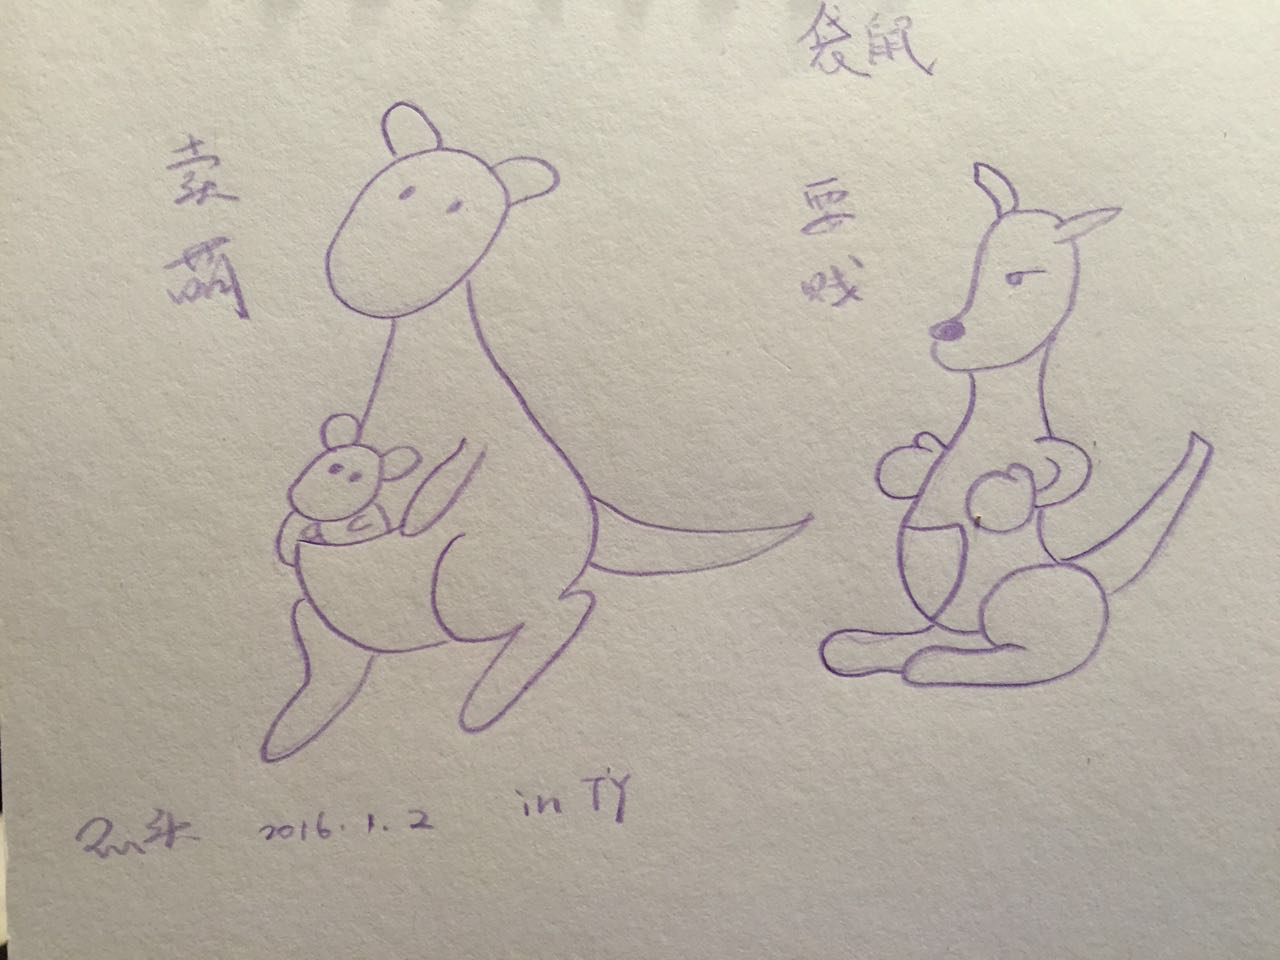 袋鼠
卖萌
耍贱
2016.1.2 in TY